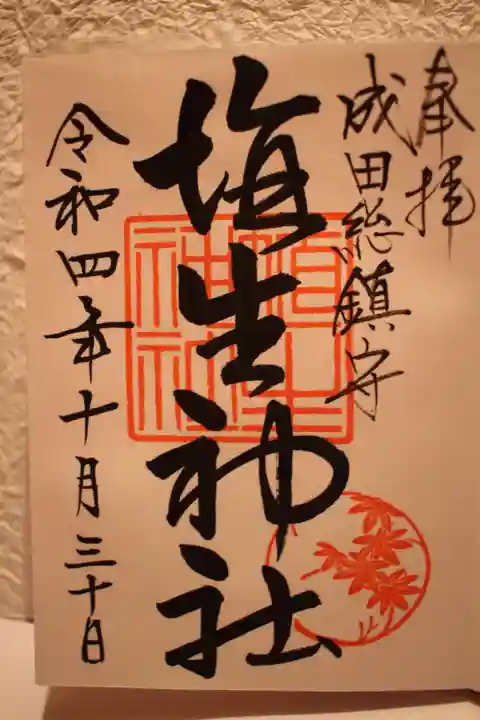 奉拝
成田総鎮守
埴生神社
令和四年十月三十日
埴生神社